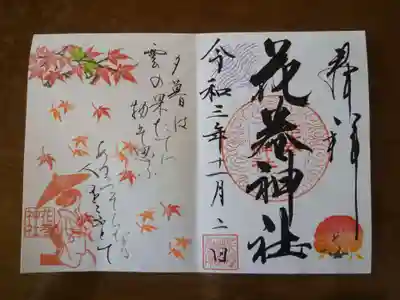 奉拝
花巻神社
令和三年十一月二日
夕暮は
雲の果たてに
物ぞ思ふ
あまつそらなる
人を恋ふとて
花巻
神社